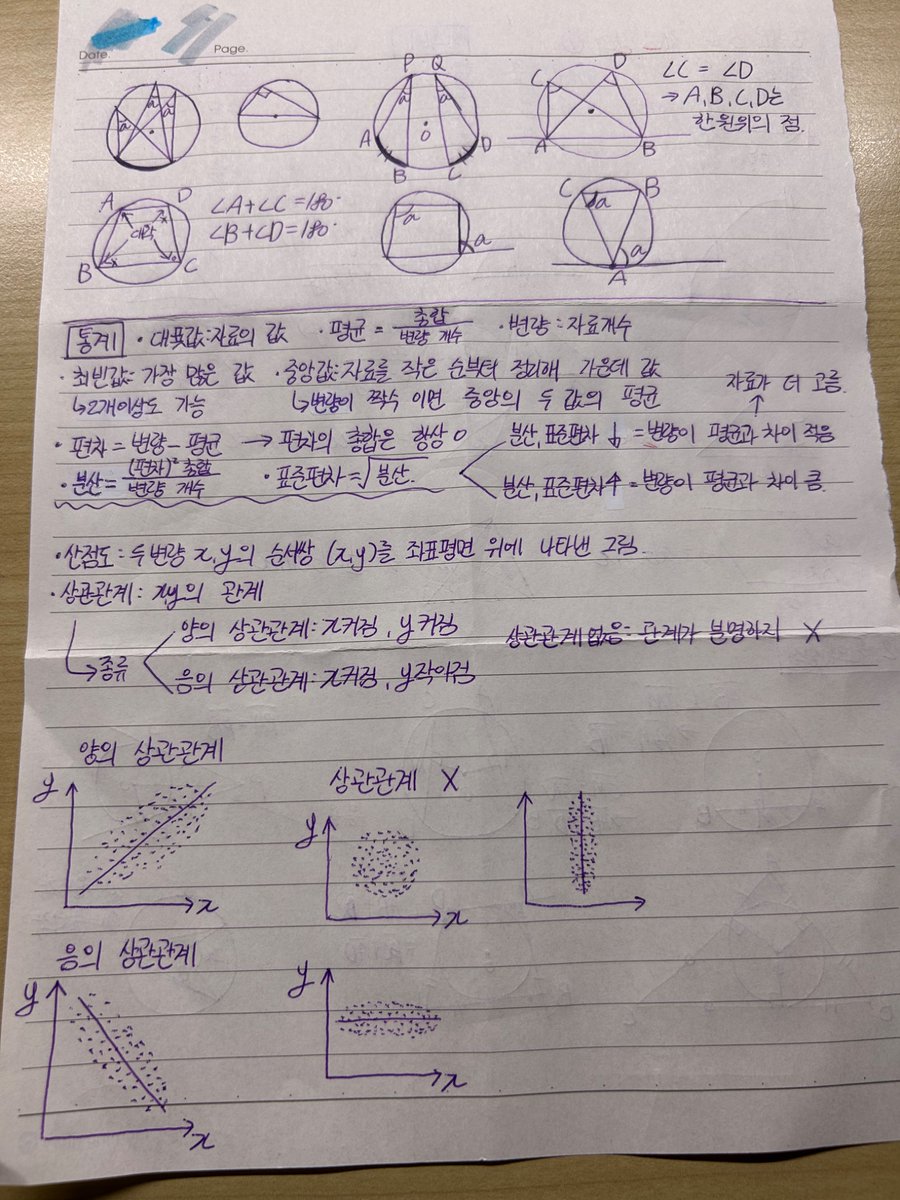 Date.
Page.
a a a
P Q
a a
A O D
B C
C D
A B
∠C = ∠D
→ A, B, C, D는
한 원위의 점.
A D
대각
B C
∠A+∠C=180°
∠B+∠D=180°
a
a
C B
a
a
A
통계 · 대푯값:자료의 값 · 평균 = 총합/변량 개수 · 변량 : 자료개수
· 최빈값: 가장 많은 값 · 중앙값:자료를 작은 순부터 정리해 가운데 값
↳2개이상도 가능 ↳변량이 짝수 이면 중앙의 두 값의 평균
자료가 더 고름.
· 편차 = 변량 - 평균 → 편차의 총합은 항상 0
분산, 표준편차 ↓ = 변량이 평균과 차이 적음
· 분산 = (편차)² 총합/변량 개수 · 표준편차=√분산.
분산, 표준편차↑ = 변량이 평균과 차이 큼.
· 산점도 : 두 변량 x,y의 순서쌍 (x,y)를 좌표평면 위에 나타낸 그림.
· 상관관계 : x,y의 관계
→종류
양의 상관관계: x커짐, y커짐
음의 상관관계: x커짐, y작아짐
상관관계없음: 관계가 분명하지 X
양의 상관관계
y
x
상관관계 X
y
x
음의 상관관계
y
x
y
x